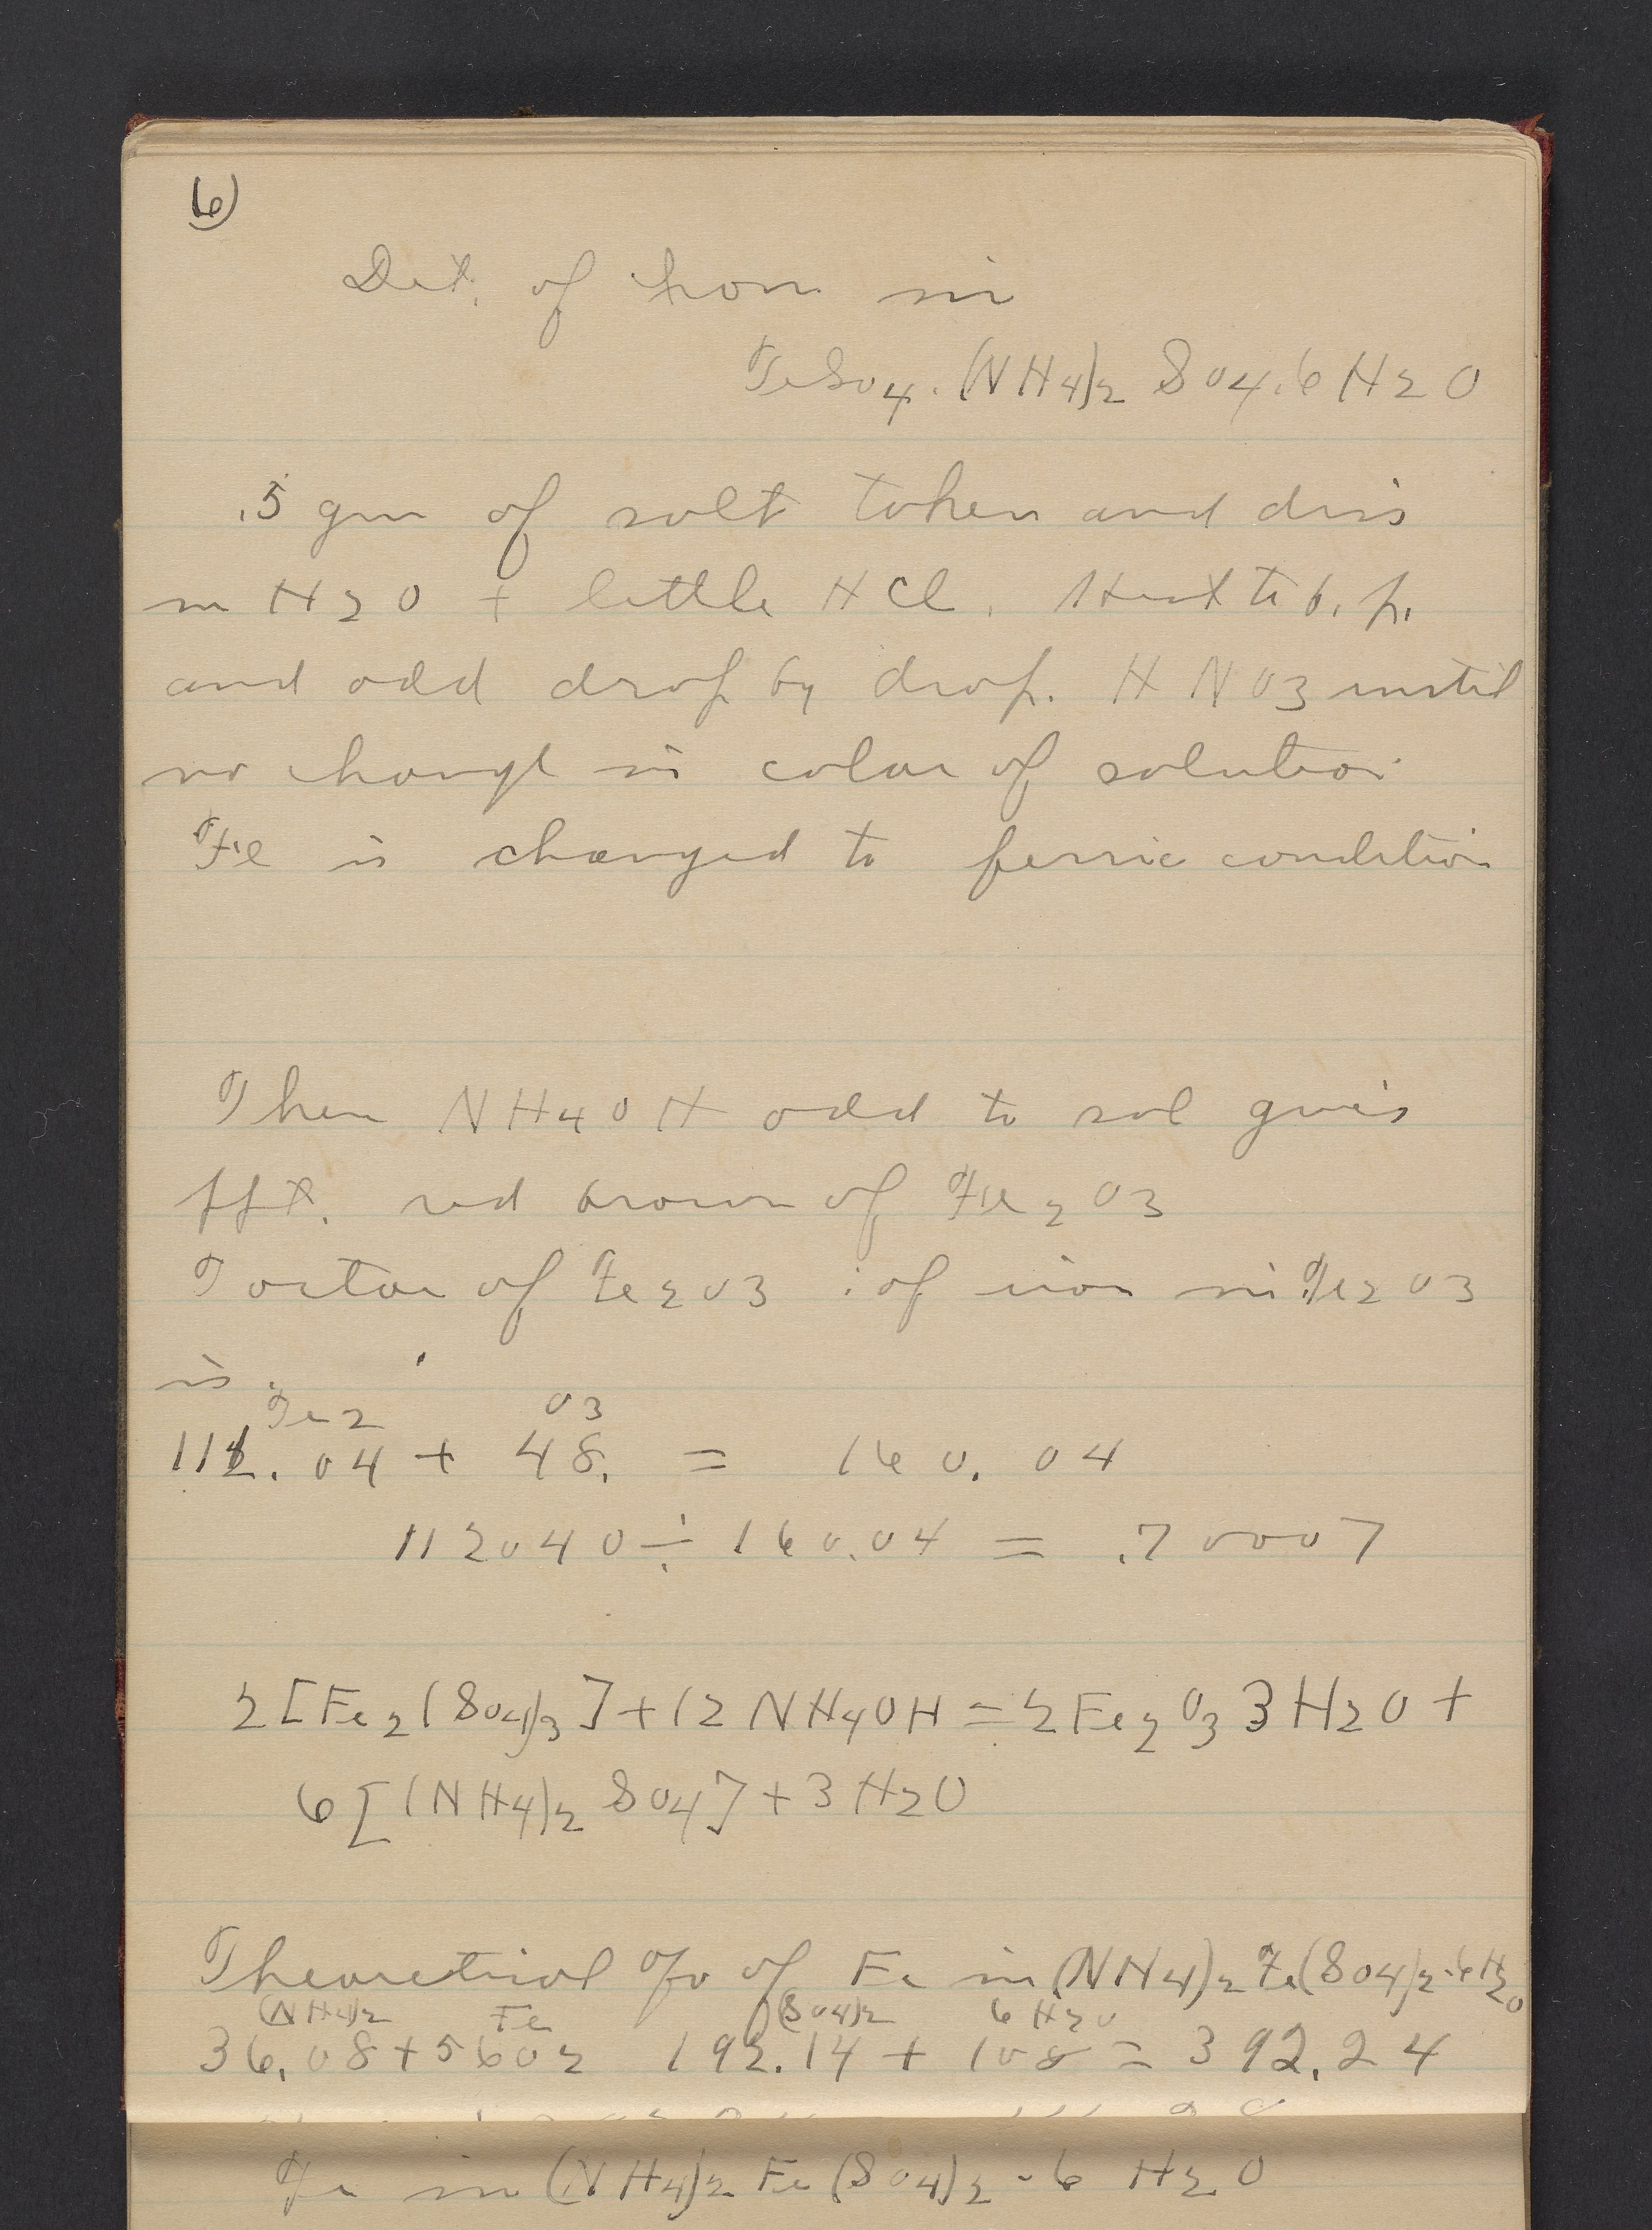 6)
Det. of iron in
FeSO4.(NH4)2 SO4.6H2O
.5 gm of salt taken and diss
in H2O + little HCl. Heat to b.p.
and add drop by drop. HNO3 until
no change in color of solution
Fe is changed to ferric condition
Then NH4OH add to sol gives
ppt. red brown of Fe2O3
Factor of Fe2O3 : of iron in Fe2O3
is.
Fe2 O3
112.04 + 48. = 160.04
112040 ÷ 160.04 = .70007
2[Fe2(SO4)3] + 12NH4OH = 2Fe2O3 3H2O +
6[(NH4)2 SO4] + 3H2O
Theoretical % of Fe in (NH4)2 Fe(SO4)2.6H2O
(NH4)2 Fe (SO4)2 6H2O
36.08 + 5602 192.14 + 108 = 392.24
Fe in (NH4)2 Fe(SO4)2 - 6 H2O